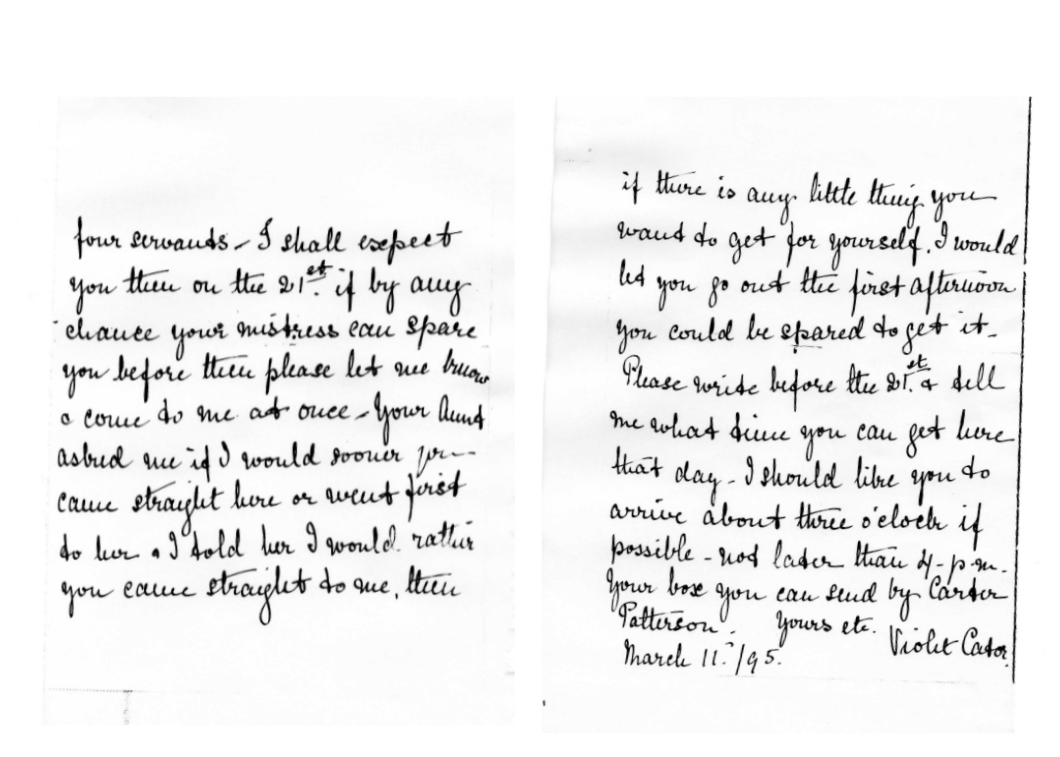 four servants - I shall expect
you then on the 21st. if by any
chance your mistress can spare
you before then please let me know
& come to me at once - Your Aunt
asked me if I would sooner you
came straight here or went first
to her & I told her I would rather
you came straight to me, then
if there is any little thing you
want to get for yourself. I would
let you go out the first afternoon
you could be spared to get it -
Please write before the 21st. & tell
me what time you can get here
that day - I should like you to
arrive about three o'clock if
possible - not later than 4-p-m.
Your box you can send by Carter
Patterson. Yours etc. Violet Cator.
March 11./95.